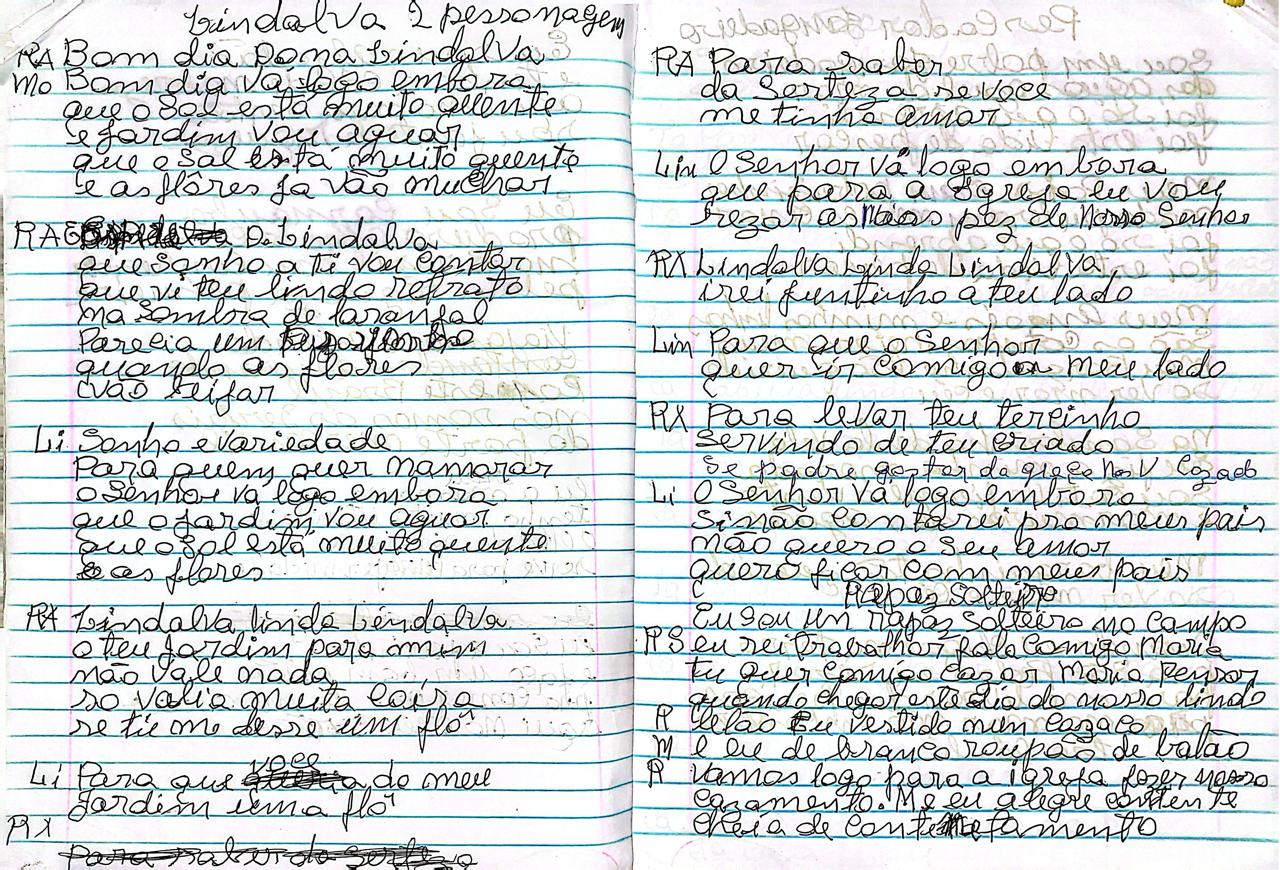 Lindalva 2 pessonagem
RA Bom dia Dona Lindalva
Mo Bom dia va logo embora
que o sol está muito quente
e jardim vou aguar
que o sol está muito quente
e as flôres ja vão muchar
RA D. Lindalva
que sonho a ti vou contar
que vi teu lindo retrato
na sombra de laranjal
Parecia um
quando as flores
vão seifar
Li Sonho e variedade
Para quem quer namorar
o Senhor va logo embora
que o jardim vou aguar
que o sol está muito quente
e as flores
RA Lindalva linda Lindalva
o teu jardim para mim
não vale nada
so valia muita coisa
se tu me desse um flô
voce
Li Para que a do meu
jardim uma flô
RX
Para saber da serteza
RA Para saber
da Serteza se voce
me tinha amor
Lin O Senhor vá logo embora
que para a Igreja eu vou
rezar as pez de Nosso Senhor
RX Lindalva Linda Lindalva
irei juntinho a teu lado
Lin Para que o Senhor
quer ir comigo a meu lado
RX Para levar teu tercinho
servindo de teu criado
Se padre gostar da
Li O Senhor vá logo embora
sinão contarei pro meus pais
não quero o seu amor
quero ficar com meus pais
Rapaz Solteiro
Eu sou um rapaz solteiro no campo
RS eu rei trabalhar fala comigo Maria
tu quer comigo cazar Maria Pensar
quando chegar este dia do nosso lindo
R Eu vestido num cazaco
M e eu de branco roupão de balão
R Vamos logo para a igreja fazer nosso
cazamento. Me eu alegre contente
cheia de